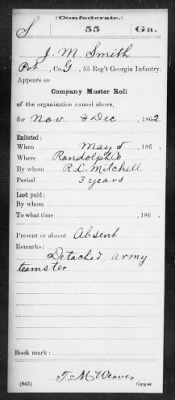 (Confederate.)
S 55 Ga.
J. M. Smith
Pvt, Co. G, 55 Reg't Georgia Infantry.
Appears on
Company Muster Roll
of the organization named above,
for Nov & Dec, 1862
Enlisted:
When May 5, 186 .
Where Randolph Co
By whom R. L. Mitchell
Period 3 years
Last paid:
By whom
To what time , 186 .
Present or absent Absent
Remarks:
Detached army
teamster
Book mark:
T. M. Weaver
(642) Copyist.